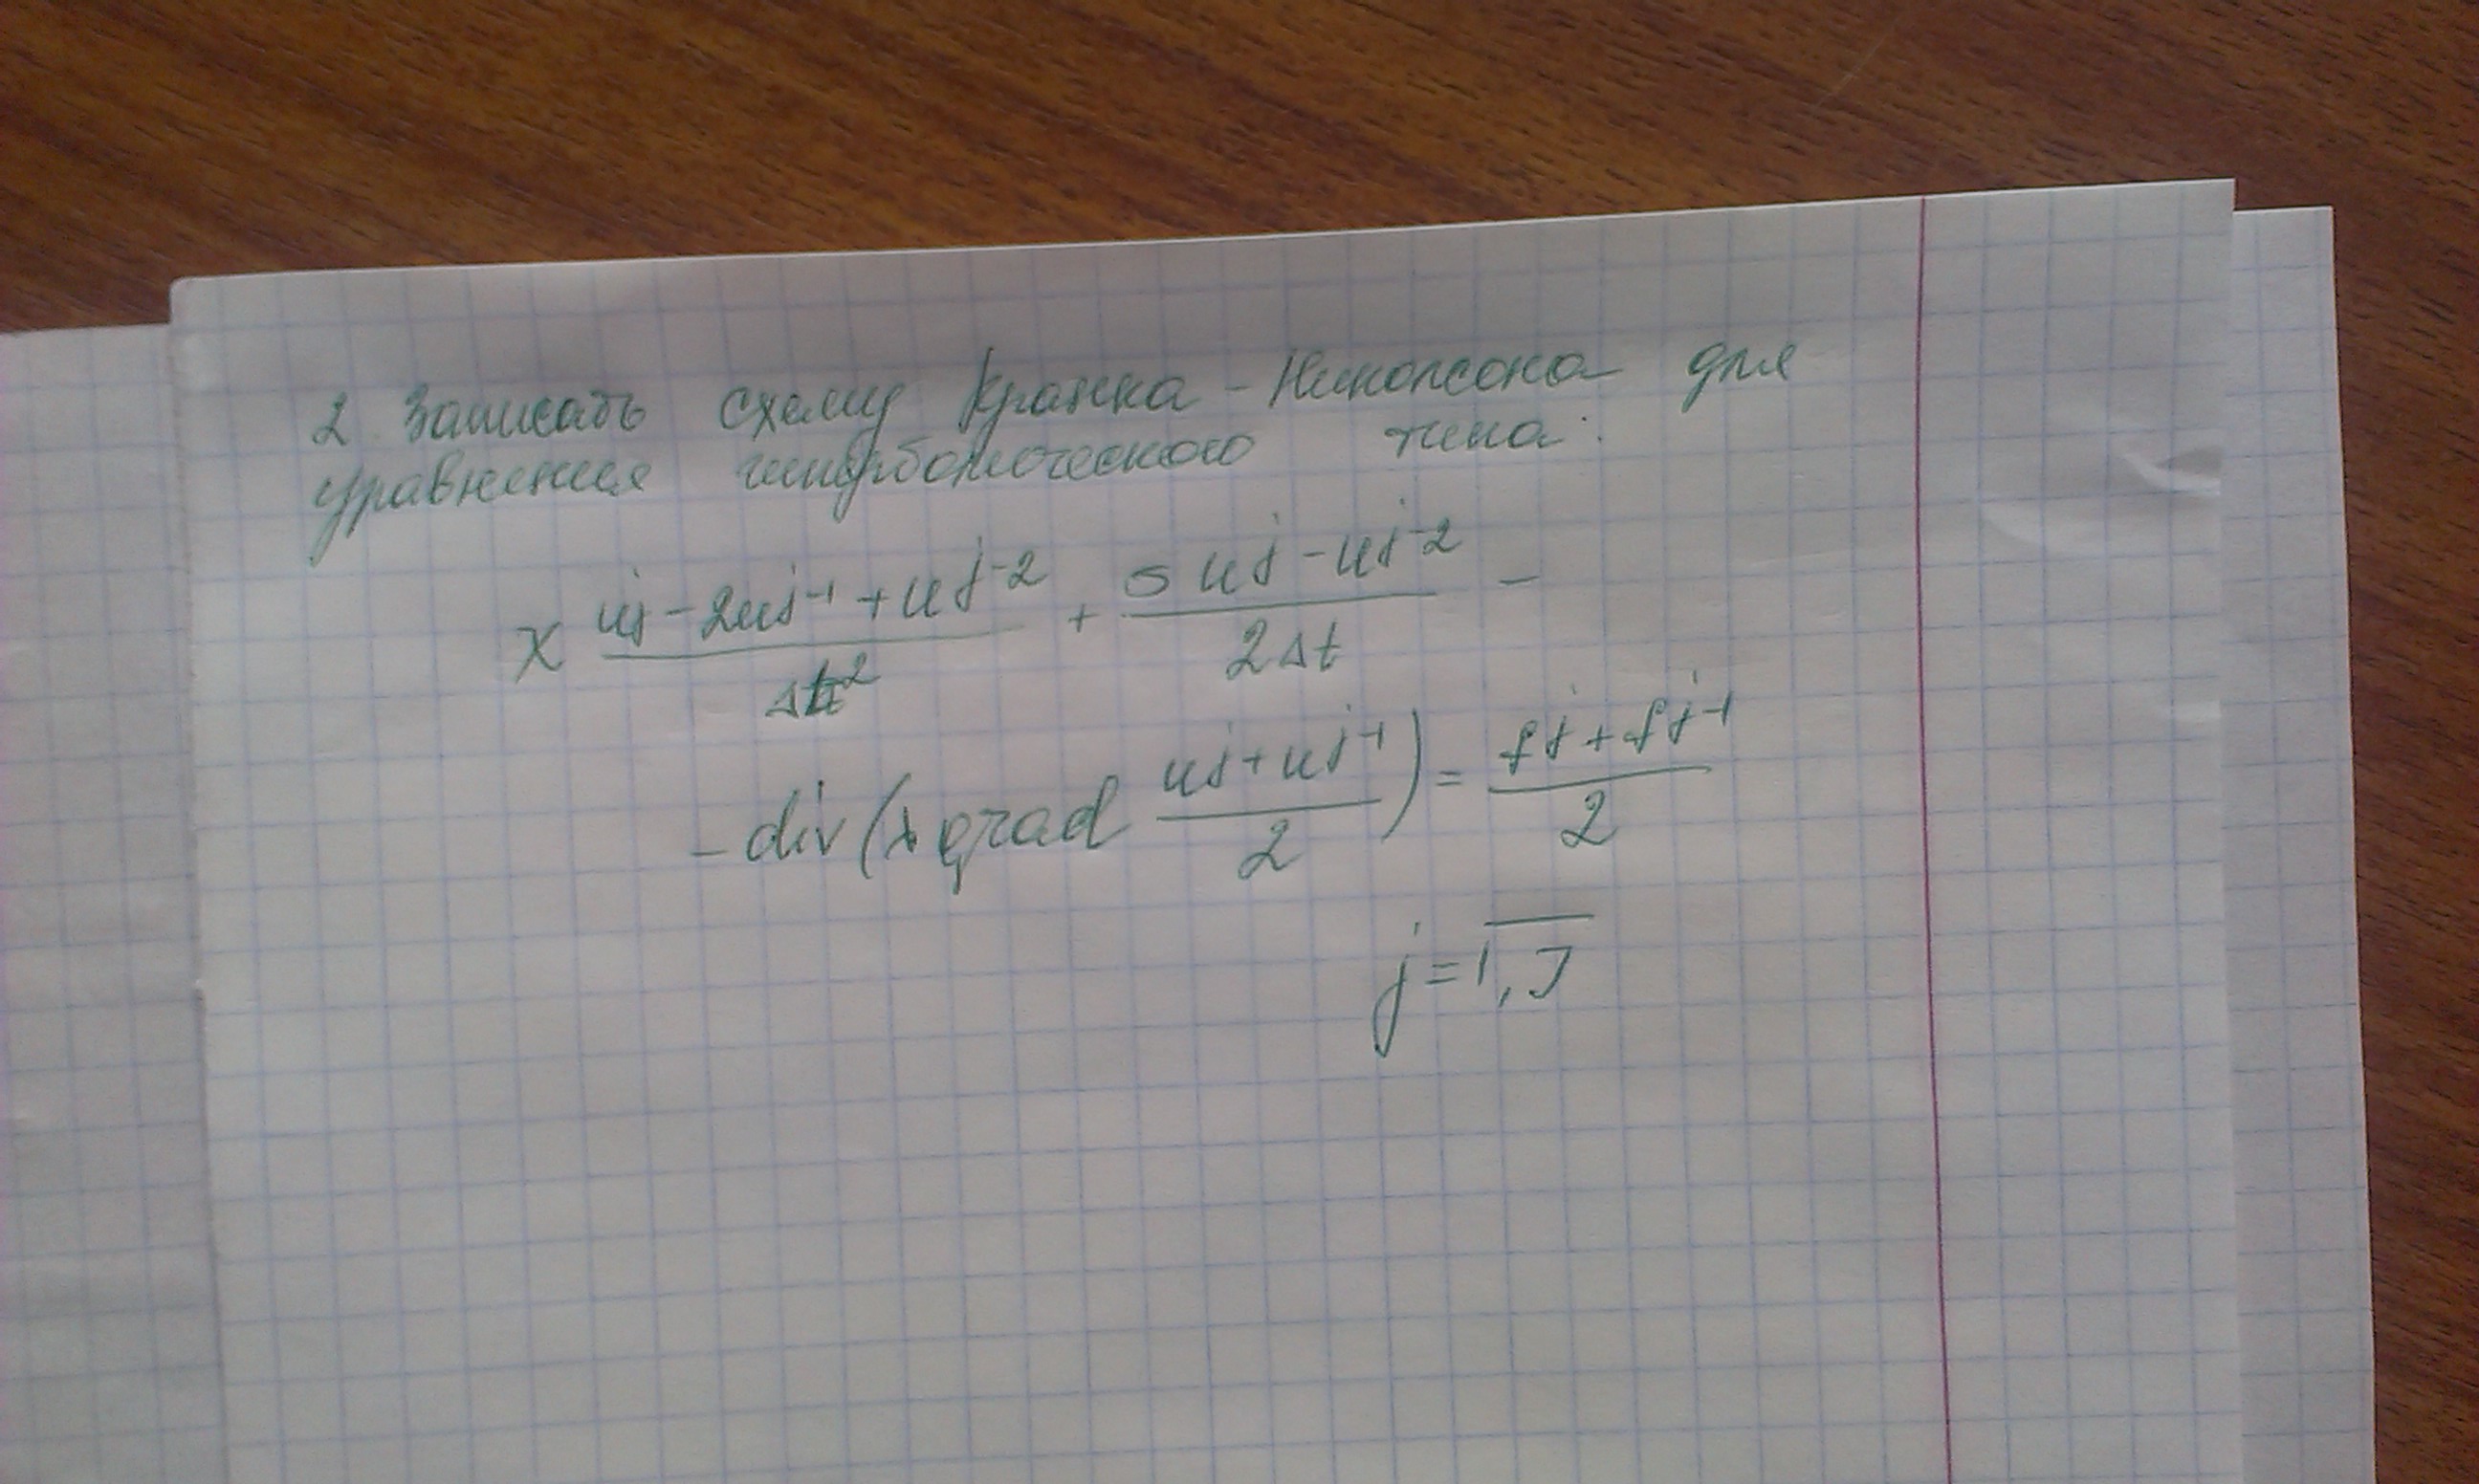 2. Записать схему Кранка - Николсона для
уравнения гиперболического типа:
χ (u^j - 2u^{j-1} + u^{j-2}) / Δt^2 + σ (u^j - u^{j-2}) / 2Δt -
- div(λ grad (u^j + u^{j-1}) / 2) = (f^j + f^{j-1}) / 2
j = \overline{1, J}